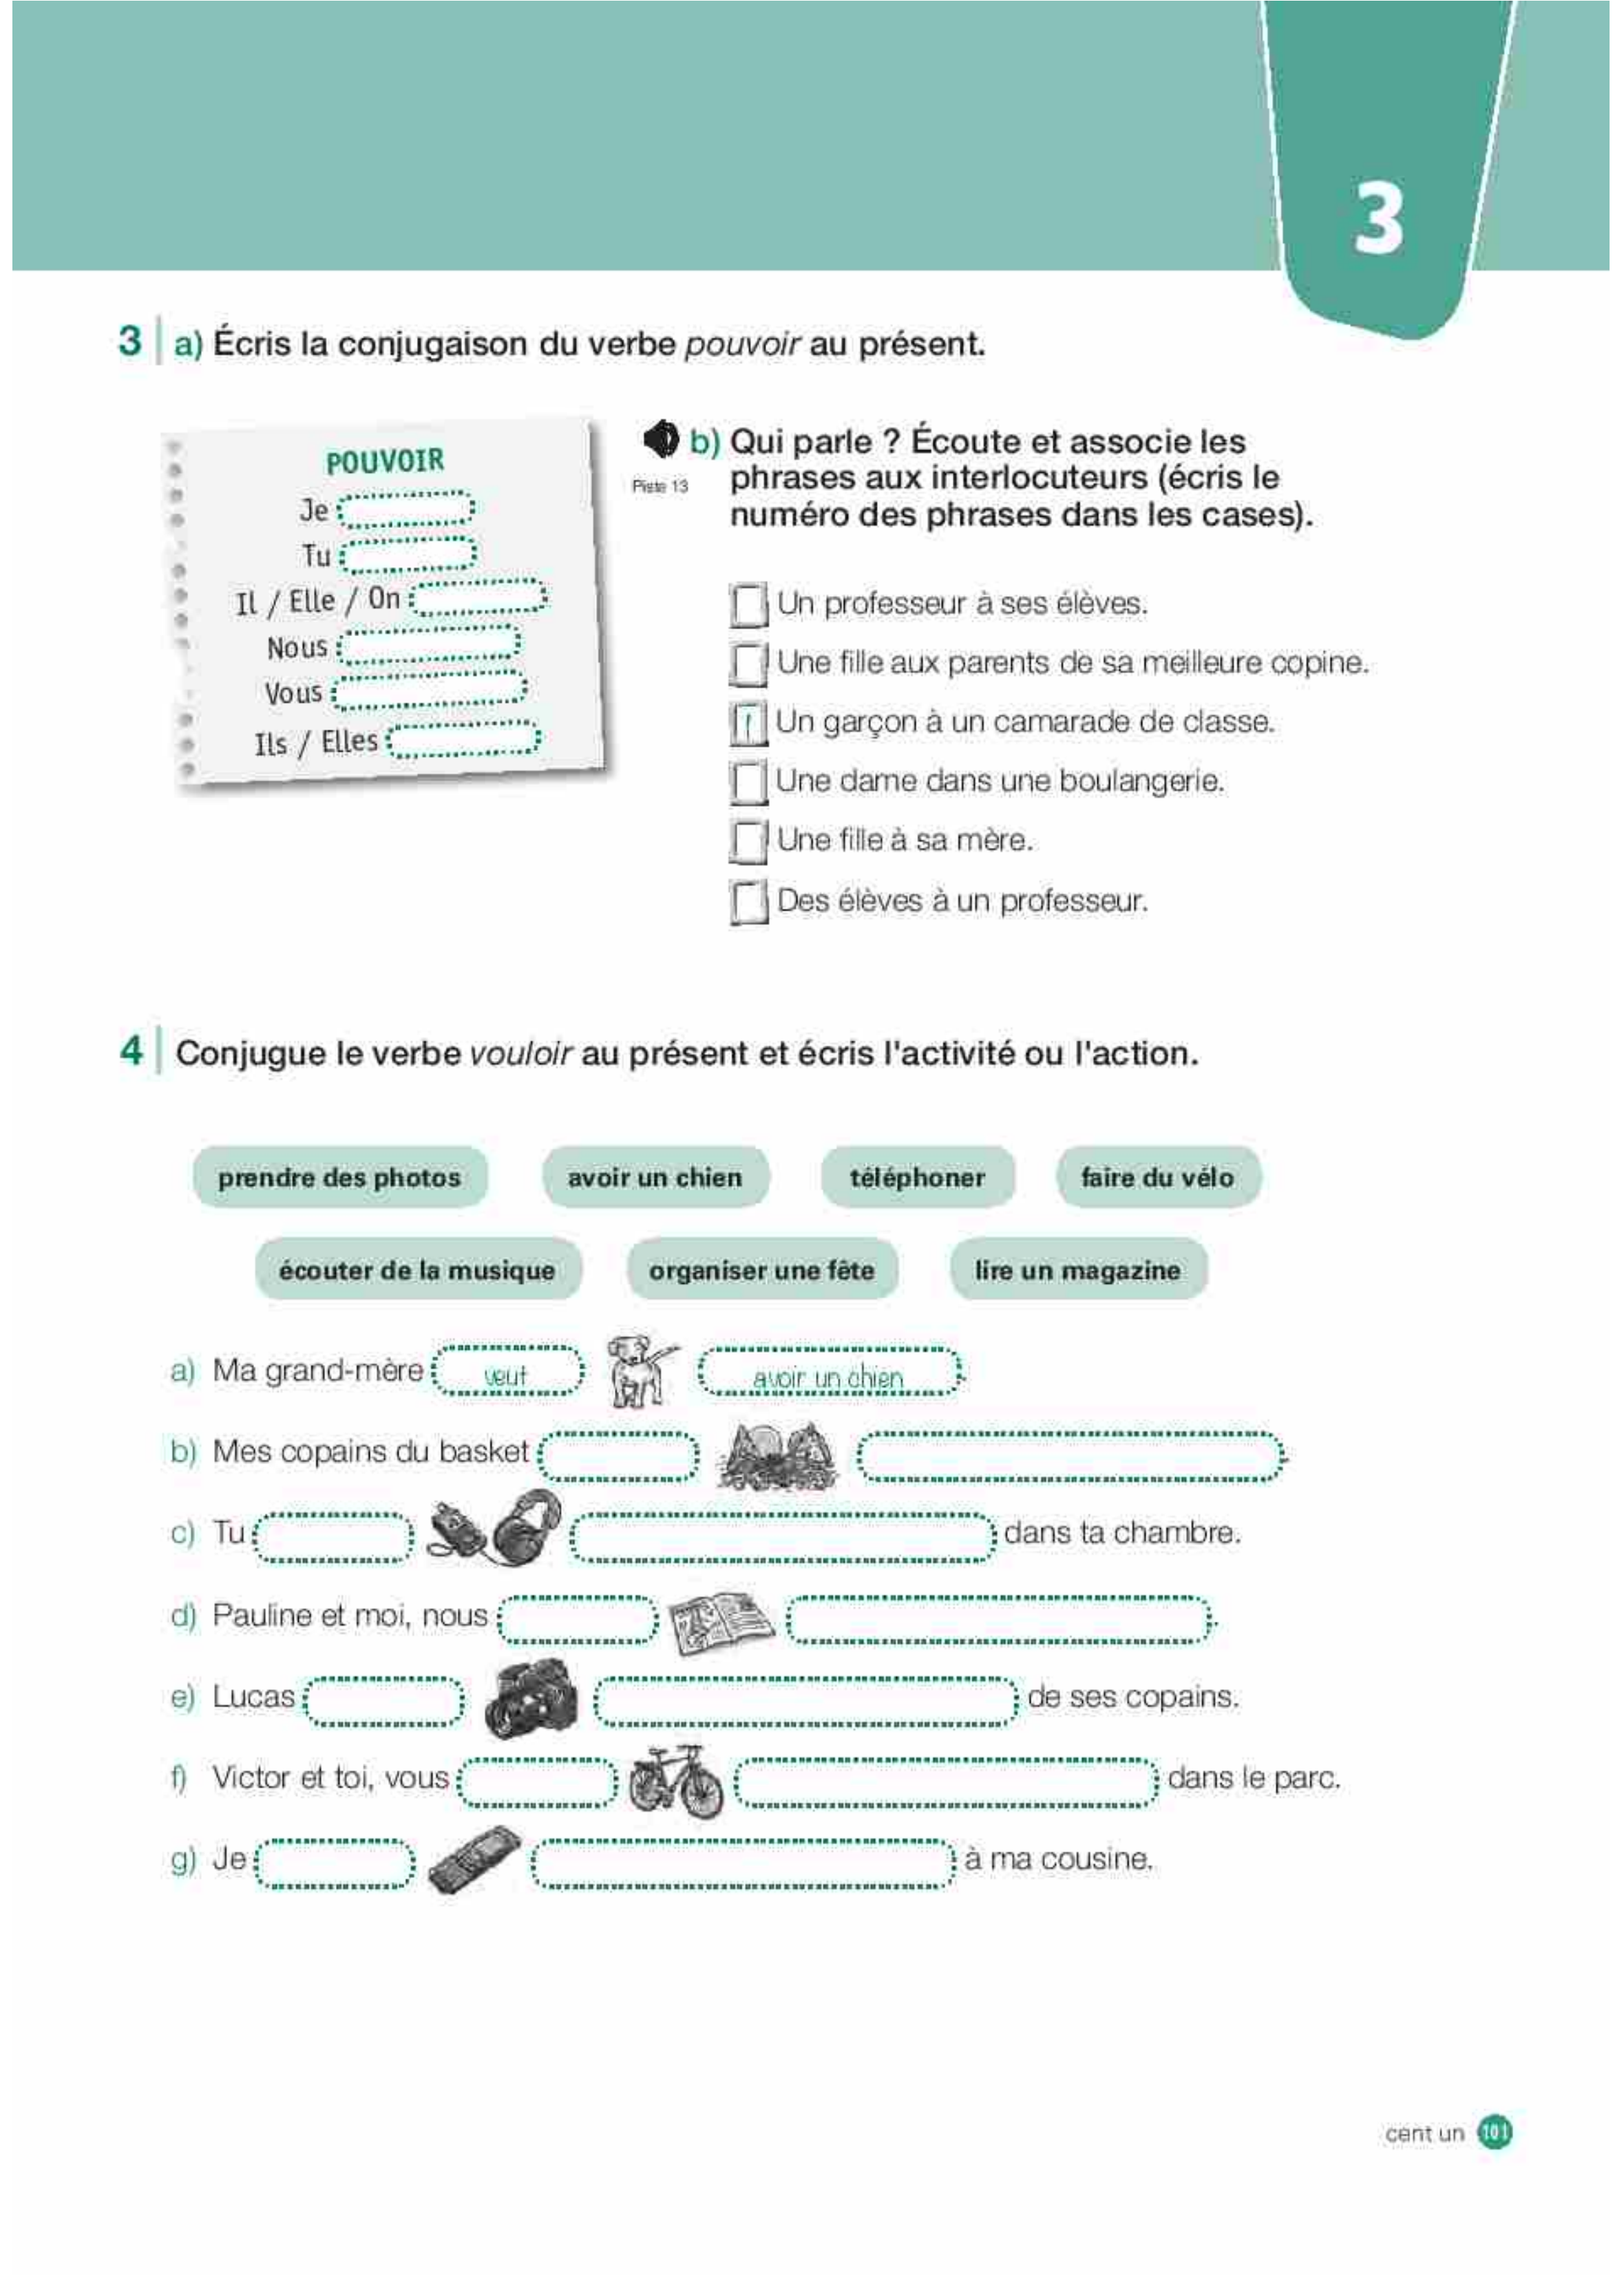 3
3 a) Écris la conjugaison du verbe pouvoir au présent.
POUVOIR
Je
Tu
Il / Elle / On
Nous
Vous
Ils / Elles
b) Qui parle ? Écoute et associe les
Piste 13
phrases aux interlocuteurs (écris le
numéro des phrases dans les cases).
Un professeur à ses élèves.
Une fille aux parents de sa meilleure copine.
1 Un garçon à un camarade de classe.
Une dame dans une boulangerie.
Une fille à sa mère.
Des élèves à un professeur.
4 Conjugue le verbe vouloir au présent et écris l'activité ou l'action.
prendre des photos avoir un chien téléphoner faire du vélo
écouter de la musique organiser une fête lire un magazine
a) Ma grand-mère veut avoir un chien.
b) Mes copains du basket .
c) Tu dans ta chambre.
d) Pauline et moi, nous .
e) Lucas de ses copains.
f) Victor et toi, vous dans le parc.
g) Je à ma cousine.
cent un 101